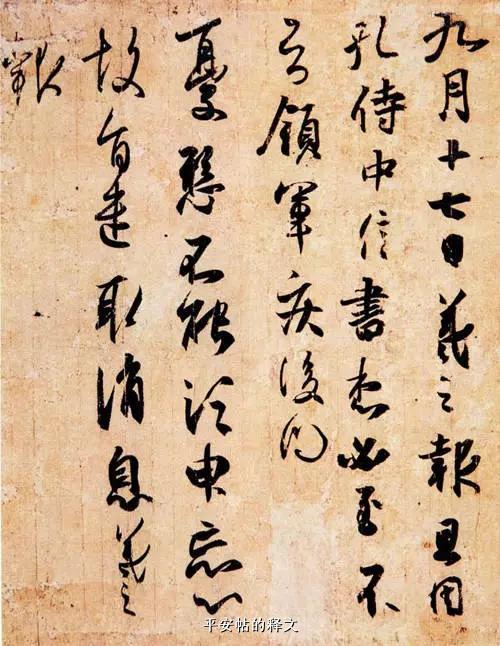 九月十七日羲之報且因
孔侍中信書想必至不
知領軍疾後問
憂懸不能須臾忘心
故旨遣取消息羲之
報
平安帖的释文